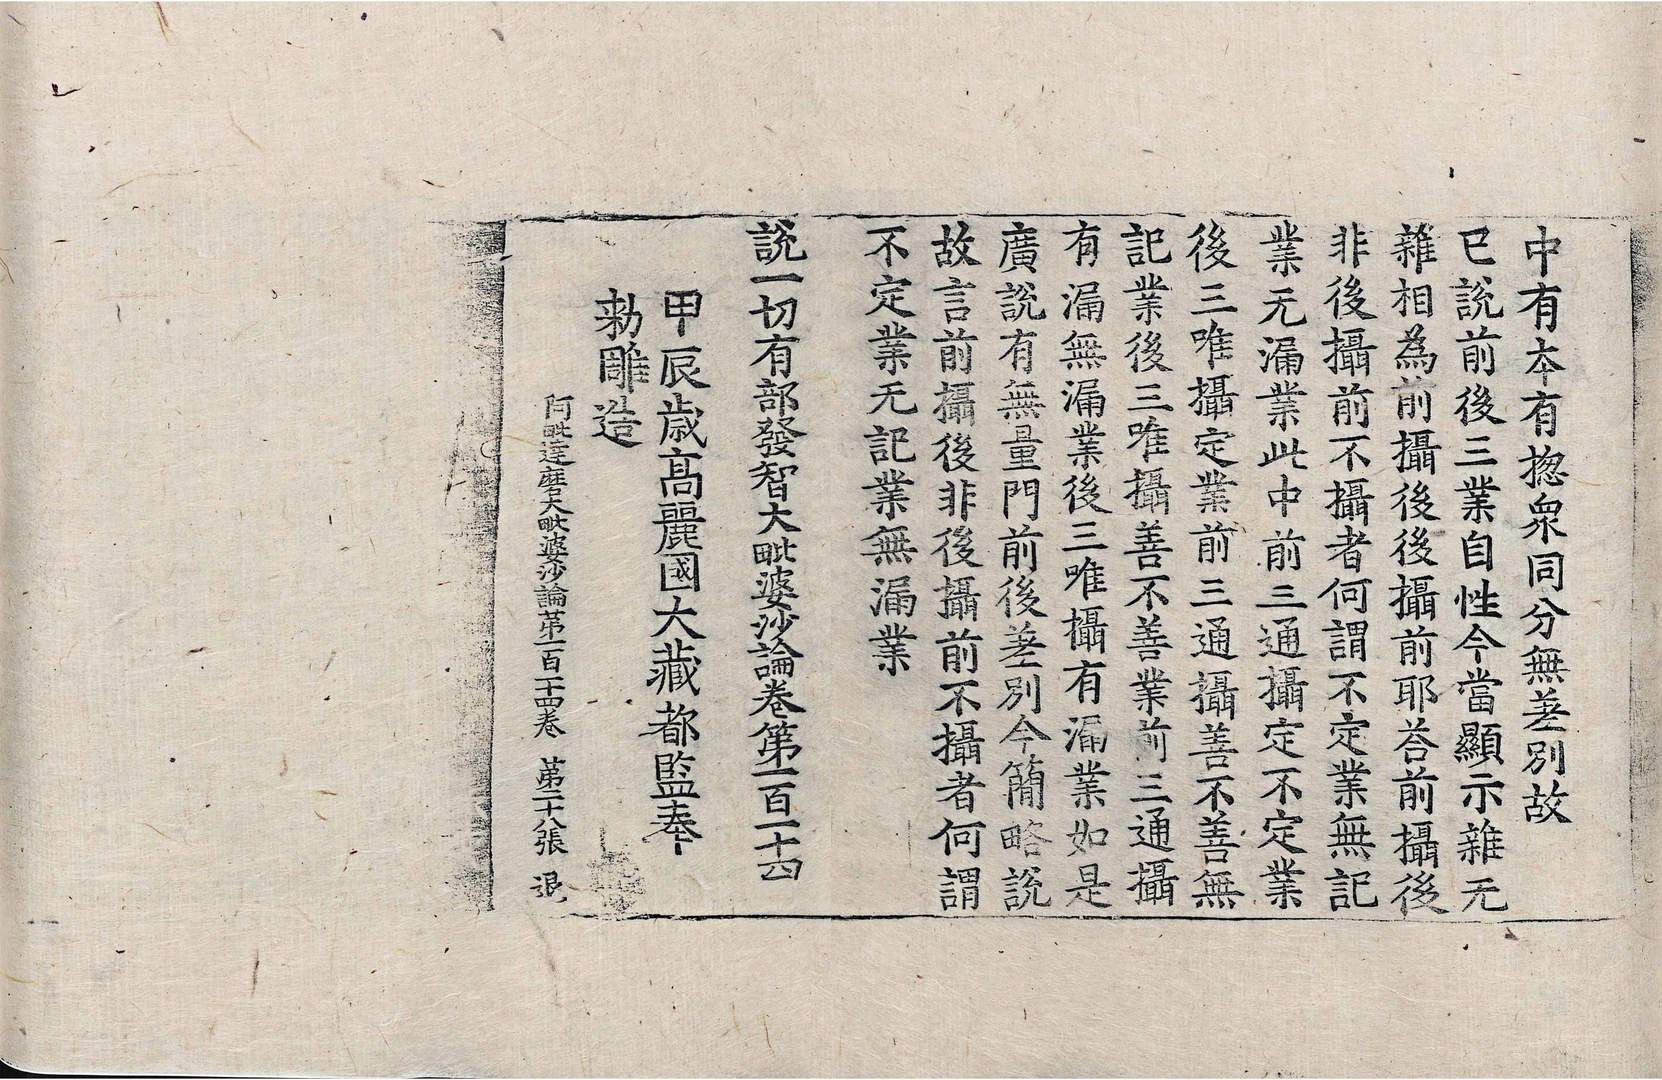 中有本有揔衆同分無差別故
已說前後三業自性今當顯示雜无
雜相為前攝後後攝前耶荅前攝後
非後攝前不攝者何謂不定業無記
業无漏業此中前三通攝定不定業
後三唯攝定業前三通攝善不善無
記業後三唯攝善不善業前三通攝
有漏無漏業後三唯攝有漏業如是
廣說有無量門前後差別今簡略說
故言前攝後非後攝前不攝者何謂
不定業无記業無漏業
說一切有部發智大毗婆沙論卷第一百一十四
甲辰歲高麗國大藏都監奉
勑雕造
阿毗達磨大毗婆沙論第一百十四卷 第二十八張 退